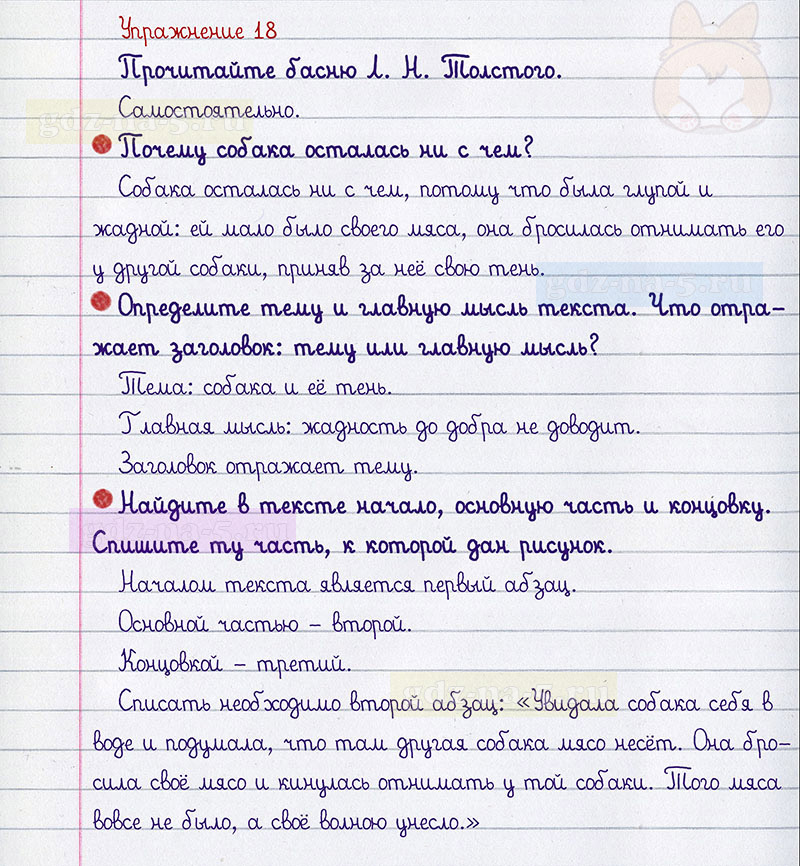 Упражнение 18
Прочитайте басню Л. Н. Толстого.
Самостоятельно.
Почему собака осталась ни с чем?
Собака осталась ни с чем, потому что была глупой и
жадной: ей мало было своего мяса, она бросилась отнимать его
у другой собаки, приняв за неё свою тень.
Определите тему и главную мысль текста. Что отра-
жает заголовок: тему или главную мысль?
Тема: собака и её тень.
Главная мысль: жадность до добра не доводит.
Заголовок отражает тему.
Найдите в тексте начало, основную часть и концовку.
Спишите ту часть, к которой дан рисунок.
Началом текста является первый абзац.
Основной частью – второй.
Концовкой – третий.
Списать необходимо второй абзац: «Увидала собака себя в
воде и подумала, что там другая собака мясо несёт. Она бро-
сила своё мясо и кинулась отнимать у той собаки. Того мяса
вовсе не было, а своё волною унесло.»
gdz-na-5.ru
gdz-na-5.ru
gdz-na-5.ru
gdz-na-5.ru